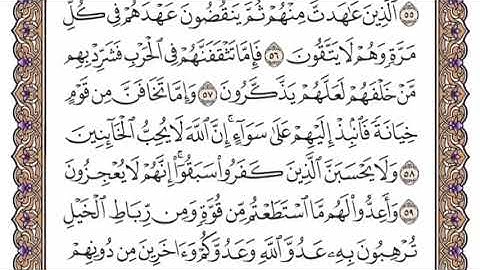 ٥٥ ٱلَّذِينَ عَٰهَدتَّ مِنْهُمْ ثُمَّ يَنقُضُونَ عَهْدَهُمْ فِى كُلِّ
مَرَّةٍ وَهُمْ لَا يَتَّقُونَ ٥٦ فَإِمَّا تَثْقَفَنَّهُمْ فِى ٱلْحَرْبِ فَشَرِّدْ بِهِم
مَّنْ خَلْفَهُمْ لَعَلَّهُمْ يَذَّكَّرُونَ ٥٧ وَإِمَّا تَخَافَنَّ مِن قَوْمٍ
خِيَانَةً فَٱنۢبِذْ إِلَيْهِمْ عَلَىٰ سَوَآءٍ ۚ إِنَّ ٱللَّهَ لَا يُحِبُّ ٱلْخَآئِنِينَ
٥٨ وَلَا يَحْسَبَنَّ ٱلَّذِينَ كَفَرُوا۟ سَبَقُوٓا۟ ۚ إِنَّهُمْ لَا يُعْجِزُونَ
٥٩ وَأَعِدُّوا۟ لَهُم مَّا ٱسْتَطَعْتُم مِّن قُوَّةٍ وَمِن رِّبَاطِ ٱلْخَيْلِ
تُرْهِبُونَ بِهِۦ عَدُوَّ ٱللَّهِ وَعَدُوَّكُمْ وَءَاخَرِينَ مِن دُونِهِمْ